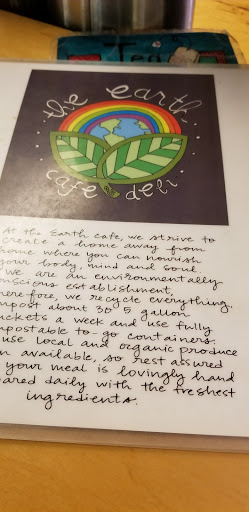 Tea
the earth
cafe & deli
At the Earth cafe, we strive to
create a home away from
home where you can nourish
your body, mind and soul.
we are an environmentally
nscious establishment,
herefore, we recycle everything.
mpost about 30 5 gallon
uckets a week and use fully
mpostable to-go containers.
use local and organic produce
n available, so rest assured
your meal is lovingly hand
pared daily with the freshest
ingredients.